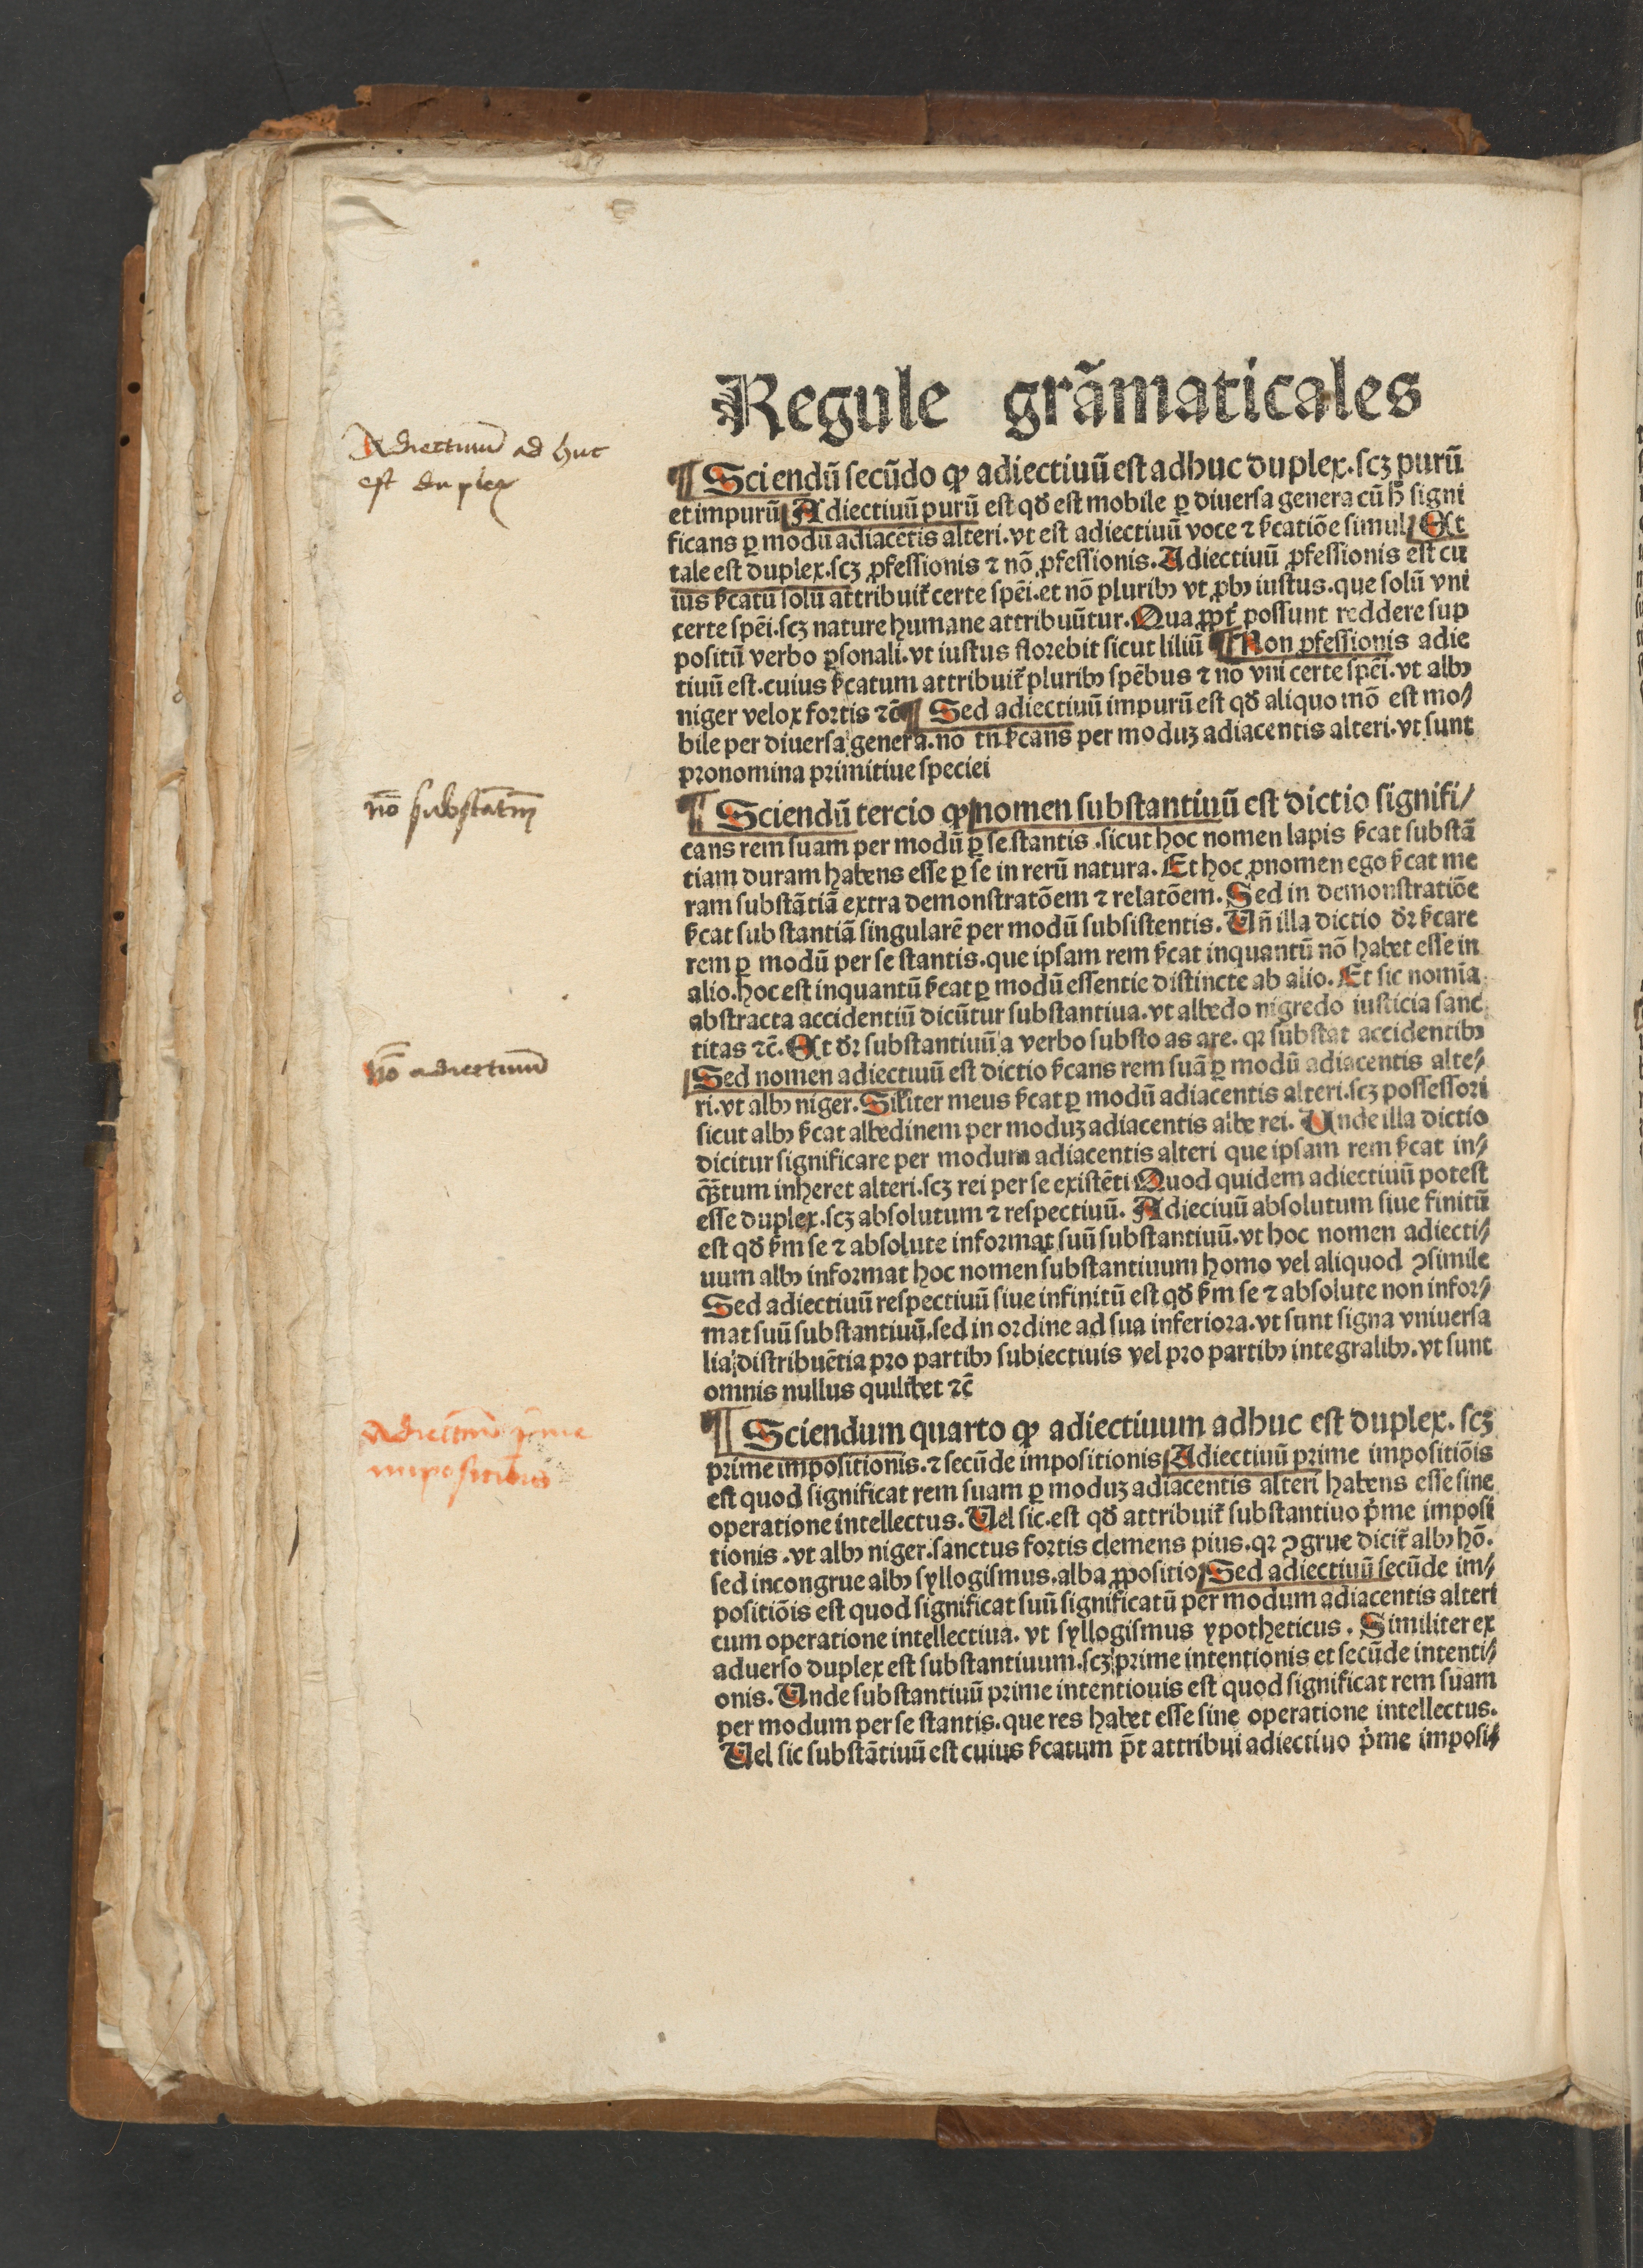 Regule grãmaticales
Adiectiuũ ad huc
est duplex
¶ Sciendũ secũdo ꝙ adiectiuũ est adhuc duplex.scꝫ purũ
et impurũ Adiectiuũ purũ est qđ est mobile ꝑ diuersa genera cũ h̾ signi
ficans ꝑ modũ adiacẽtis alteri.vt est adiectiuũ voce ⁊ ẜcatiõe simul Et
tale est duplex.scꝫ ꝓfessionis ⁊ nõ ꝓfessionis. Adiectiuũ ꝓfessionis est cu
ius ẜcatũ solũ attribuit᷑ certe spẽi.et nõ pluribꝰ vt ꝓbꝰ iustus.que solũ vni
certe spẽi.scꝫ nature humane attribuũtur. Qua ꝓpt᷑ possunt reddere sup
positũ verbo ꝑsonali.vt iustus florebit sicut liliũ ¶ Non ꝓfessionis adie
tiuũ est.cuius ẜcatum attribuit᷑ pluribꝰ spẽbus ⁊ nõ vni certe spẽi.vt albꝰ
niger velox fortis ⁊c̃ ¶ Sed adiectiuũ impurũ est qđ aliquo mõ est mo⸗
bile per diuersa genera.nõ tñ ẜcans per moduꝫ adiacentis alteri.vt sunt
pronomina primitiue speciei
nõ substãtiũ
¶ Sciendũ tercio ꝙ nomen substantiuũ est dictio signifi⸗
cans rem suam per modũ ꝑ se stantis .sicut hoc nomen lapis ẜcat substã
tiam duram habens esse ꝑ se in rerũ natura. Et hoc ꝓnomen ego ẜcat me
ram substãtiã extra demonstratõem ⁊ relatõem. Sed in demonstratiõe
ẜcat substantiã singularẽ per modũ subsistentis. Uñ illa dictio dr̃ ẜcare
rem ꝑ modũ per se stantis.que ipsam rem ẜcat inquantũ nõ habet esse in
alio.hoc est inquantũ ẜcat ꝑ modũ essentie distincte ab alio. Et sic nomĩa
abstracta accidentiũ dicũtur substantiua.vt albedo nigredo iusticia sanc
titas ⁊c̃. Et dr̃ substantiuũ a verbo substo as are. qꝛ substat accidentibꝰ
nõ adiectiuũ
Sed nomen adiectiuũ est dictio ẜcans rem suã ꝑ modũ adiacentis alte⸗
ri.vt albꝰ niger. Silꝛiter meus ẜcat ꝑ modũ adiacentis alteri.scꝫ possessori
sicut albꝰ ẜcat albedinem per moduꝫ adiacentis albe rei. Unde illa dictio
dicitur significare per modum adiacentis alteri que ipsam rem ẜcat in⸗
q̃tum inheret alteri.scꝫ rei per se existẽti Quod quidem adiectiuũ potest
esse duplex.scꝫ absolutum ⁊ respectiuũ. Adieciuũ absolutum siue finitũ
est qđ ẜm se ⁊ absolute informat suũ substantiuũ.vt hoc nomen adiecti⸗
uum albꝰ informat hoc nomen substantiuum homo vel aliquod ꝯsimile
Sed adiectiuũ respectiuũ siue infinitũ est qđ ẜm se ⁊ absolute non infor⸗
mat suũ substantiuũ.sed in ordine ad sua inferiora.vt sunt signa vniuersa
lia distribuẽtia pro partibꝰ subiectiuis vel pro partibꝰ integralibꝰ.vt sunt
omnis nullus quilibet ⁊c̃
Adiectiuũ p̃me
impositiõis
¶ Sciendum quarto ꝙ adiectiuum adhuc est duplex. scꝫ
prime impositionis.⁊ secũde impositionis Adiectiuũ prime impositiõis
est quod significat rem suam ꝑ moduꝫ adiacentis alteri habens esse sine
operatione intellectus. Uel sic.est qđ attribuit᷑ substantiuo p̾me imposi
tionis .vt albꝰ niger.sanctus fortis clemens pius.qꝛ ꝯgrue dicit᷑ albꝰ hõ.
sed incongrue albꝰ syllogismus.alba ꝓpositio Sed adiectiuũ secũde im⸗
positiõis est quod significat suũ significatũ per modum adiacentis alteri
cum operatione intellectiua. vt syllogismus ypotheticus . Similiter ex
aduerso duplex est substantiuum.scꝫ prime intentionis et secũde intenti⸗
onis. Unde substantiuũ prime intentiouis est quod significat rem suam
per modum per se stantis.que res habet esse sine operatione intellectus.
Uel sic substãtiuũ est cuius ẜcatum p̃t attribui adiectiuo p̾me imposi⸗